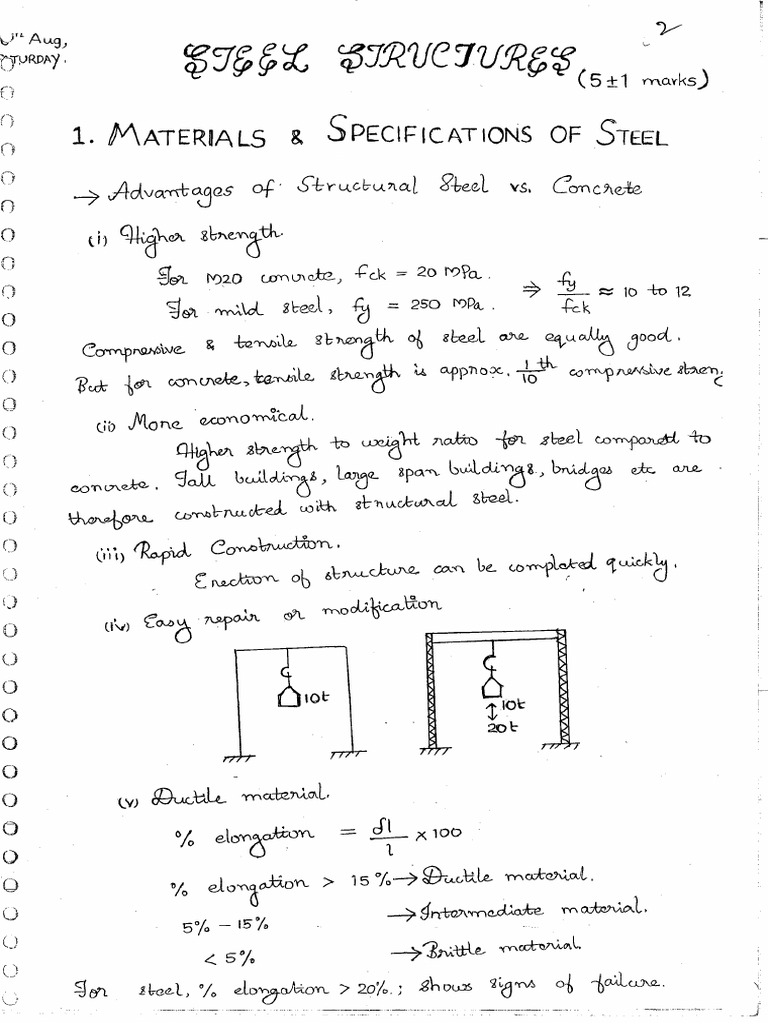 Aug,
2
STEEL STRUCTURES
(5±1 marks)
1. MATERIALS & SPECIFICATIONS OF STEEL
→ Advantages of Structural Steel vs. Concrete
(i) Higher strength.
For M20 concrete, fck = 20 MPa.
For mild steel, fy = 250 MPa.
⇒ fy/fck ≈ 10 to 12
Compressive & tensile strength of steel are equally good.
But for concrete, tensile strength is approx. 1/10 th compressive stren
(ii) More economical.
Higher strength to weight ratio for steel compared to
concrete. Tall buildings, large span buildings, bridges etc are
therefore constructed with structural steel.
(iii) Rapid Construction.
Erection of structure can be completed quickly.
(iv) Easy repair or modification
10t
10t
20t
(v) Ductile material.
% elongation = δl/l × 100
% elongation > 15% → Ductile material.
5% – 15% → Intermediate material.
< 5% → Brittle material.
For steel, % elongation > 20%; shows signs of failure.